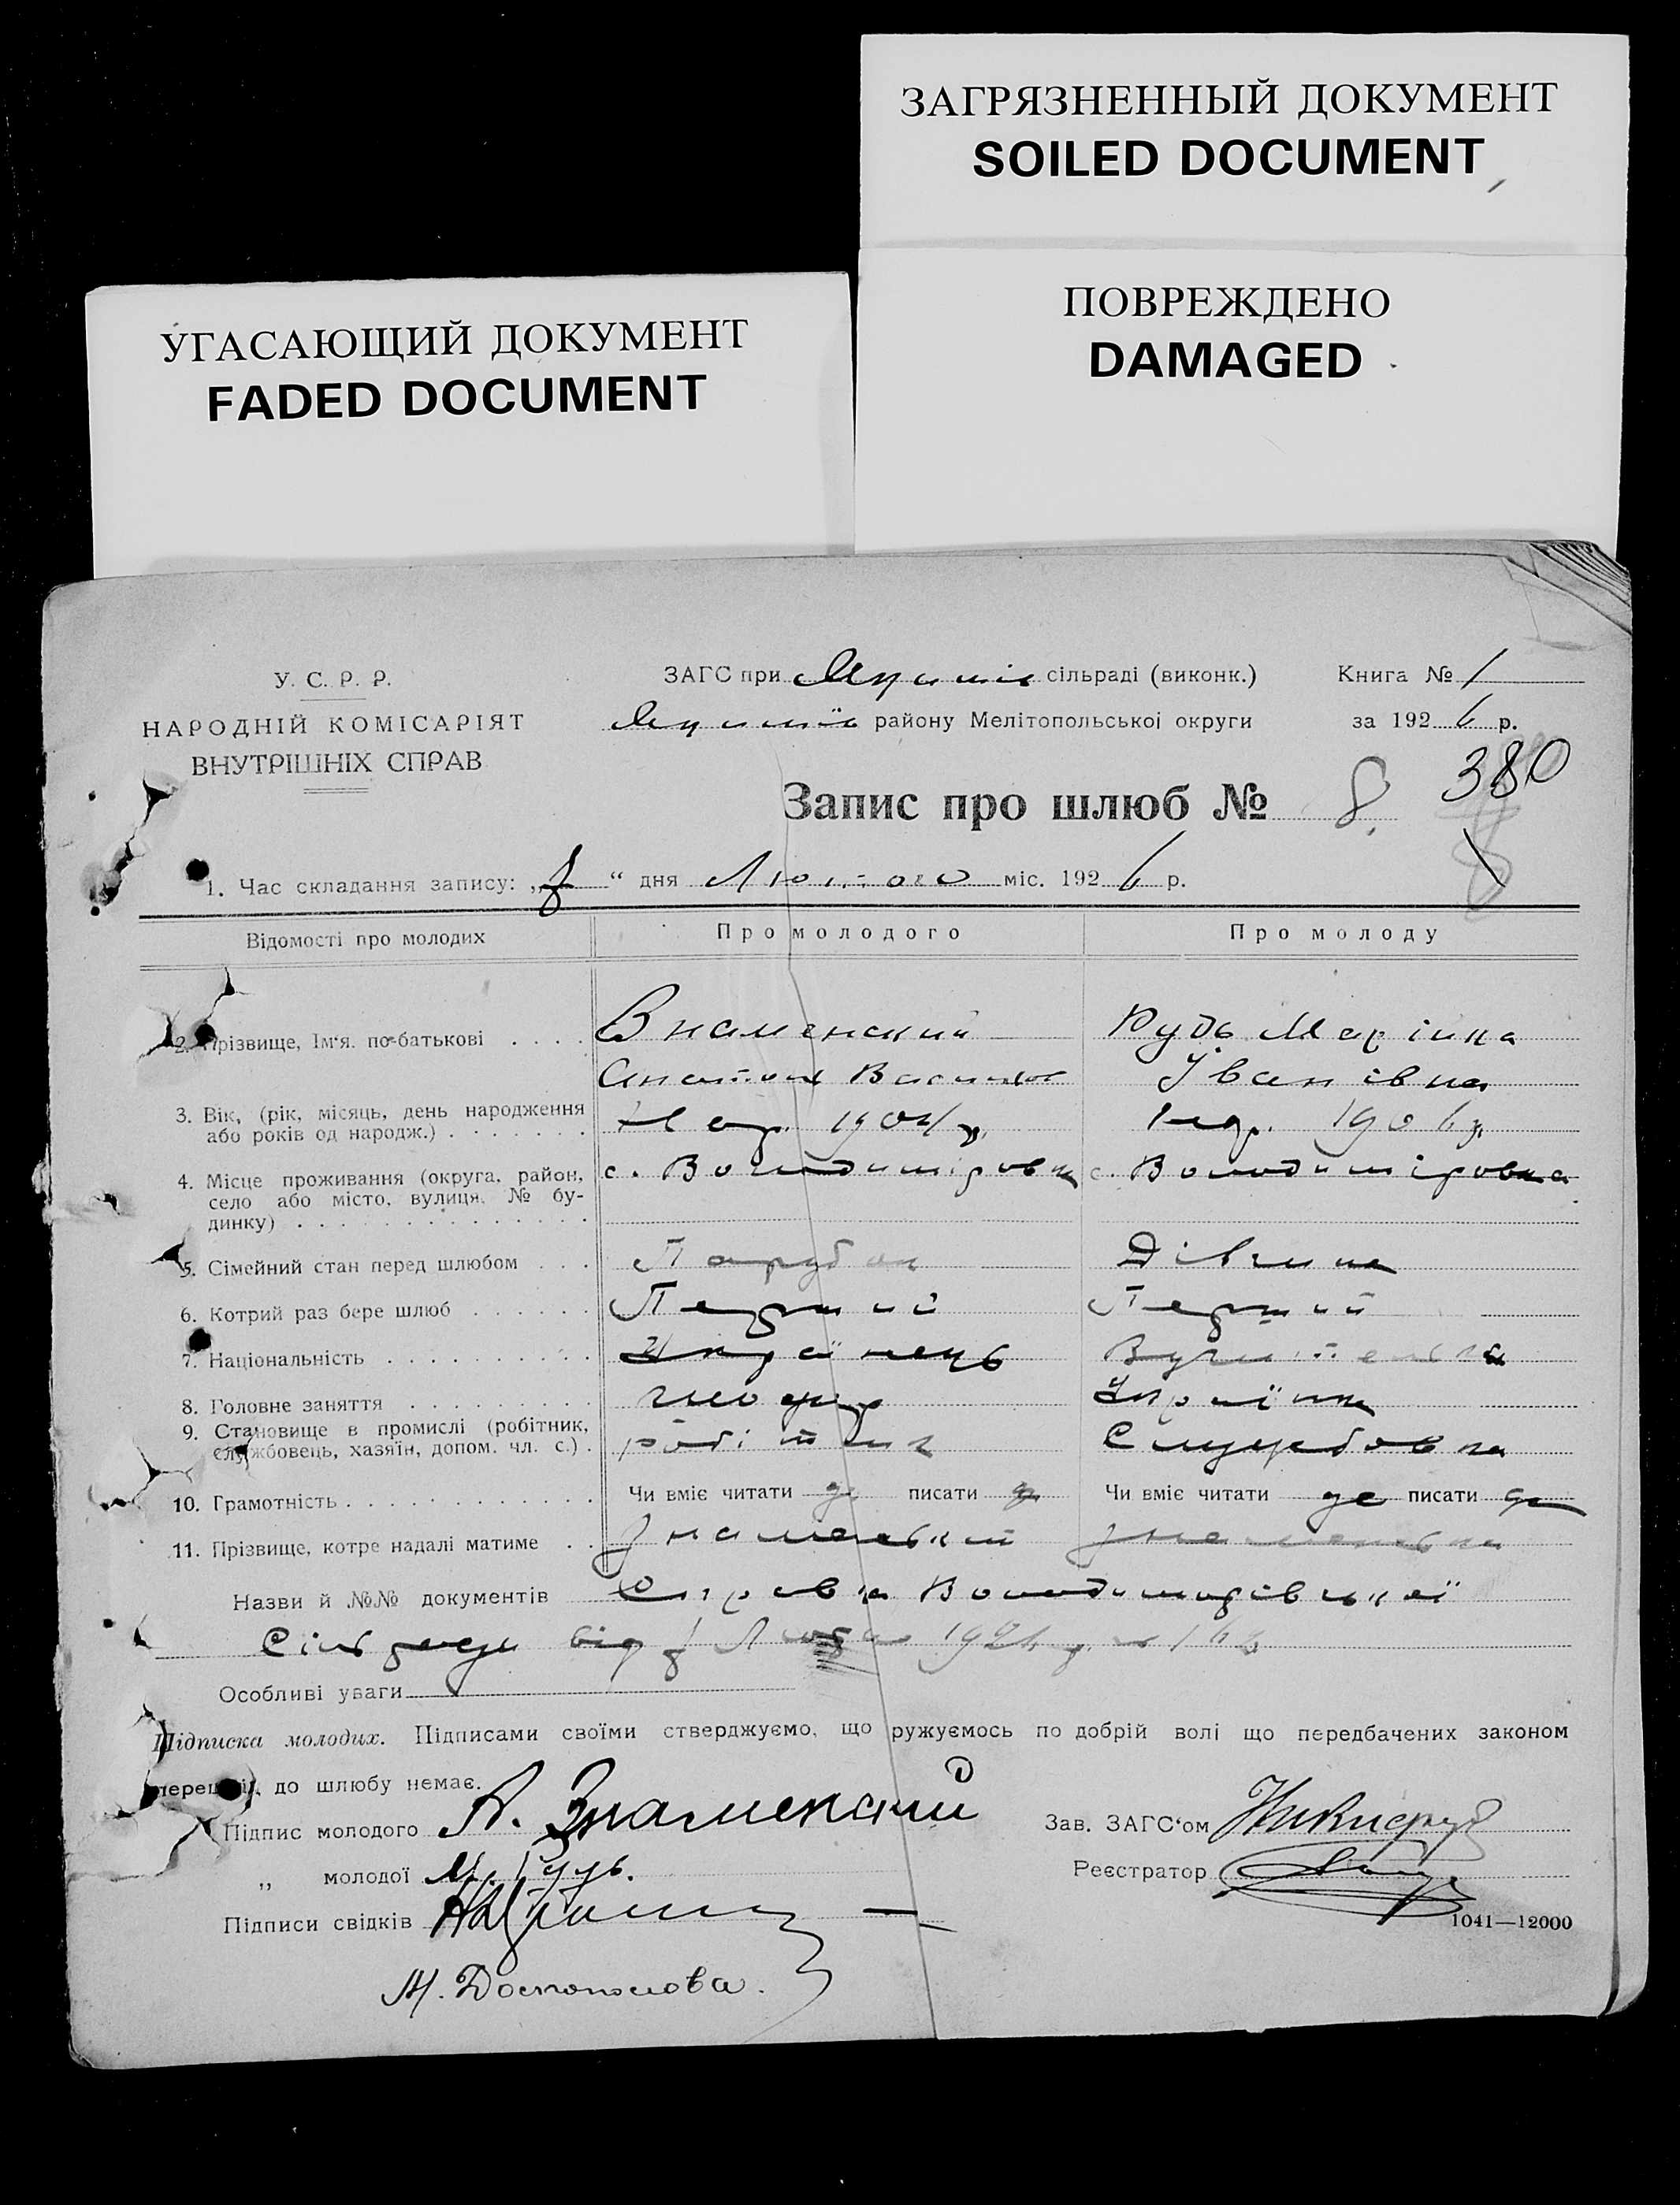 ЗАГРЯЗНЕННЫЙ ДОКУМЕНТ
SOILED DOCUMENT
УГАСАЮЩИЙ ДОКУМЕНТ
FADED DOCUMENT
ПОВРЕЖДЕНО
DAMAGED
У. С. Р. Р.
НАРОДНІЙ КОМІСАРІЯТ
ВНУТРІШНІХ СПРАВ
ЗАГС при сільраді (виконк.)
району Мелітопольської округи
Книга № 1
за 192 6 р.
380
Запис про шлюб № 8.
1. Час складання запису: „ “ дня Лютого міс. 192 6 р.
Відомості про молодих Про молодого Про молоду
2. Прізвище, Ім'я. по-батькові Знаменский Рудь Марійка
Анатолий Василов Іванівна
3. Вік, (рік, місяць, день народження
або років од народж.) 1904 р. 190
4. Місце проживання (округа, район, с. Володимировка с. Володимировка
село або місто, вулиця, № бу-
динку)
5. Сімейний стан перед шлюбом Парубок Дівчина
6. Котрий раз бере шлюб Перший Перший
7. Національність Українець Вучителька
8. Головне заняття Українка
9. Становище в промислі (робітник,
службовець, хазяїн, допом. чл. с.) робітник Службовка
10. Грамотність Чи вміє читати да писати да Чи вміє читати да писати да
11. Прізвище, котре надалі матиме Знаменський Знаменська
Назви й №№ документів Справка Володимирівської
Сільради від
Особливі уваги
Підписка молодих. Підписами своїми стверджуємо, що ружуємось по добрій волі що передбачених законом
перешкід до шлюбу немає.
Підпис молодого А. Знаменский
„ молодої М. Рудь.
Підписи свідків
М. Доспополова.
Зав. ЗАГС'ом
Реєстратор
1041—12000